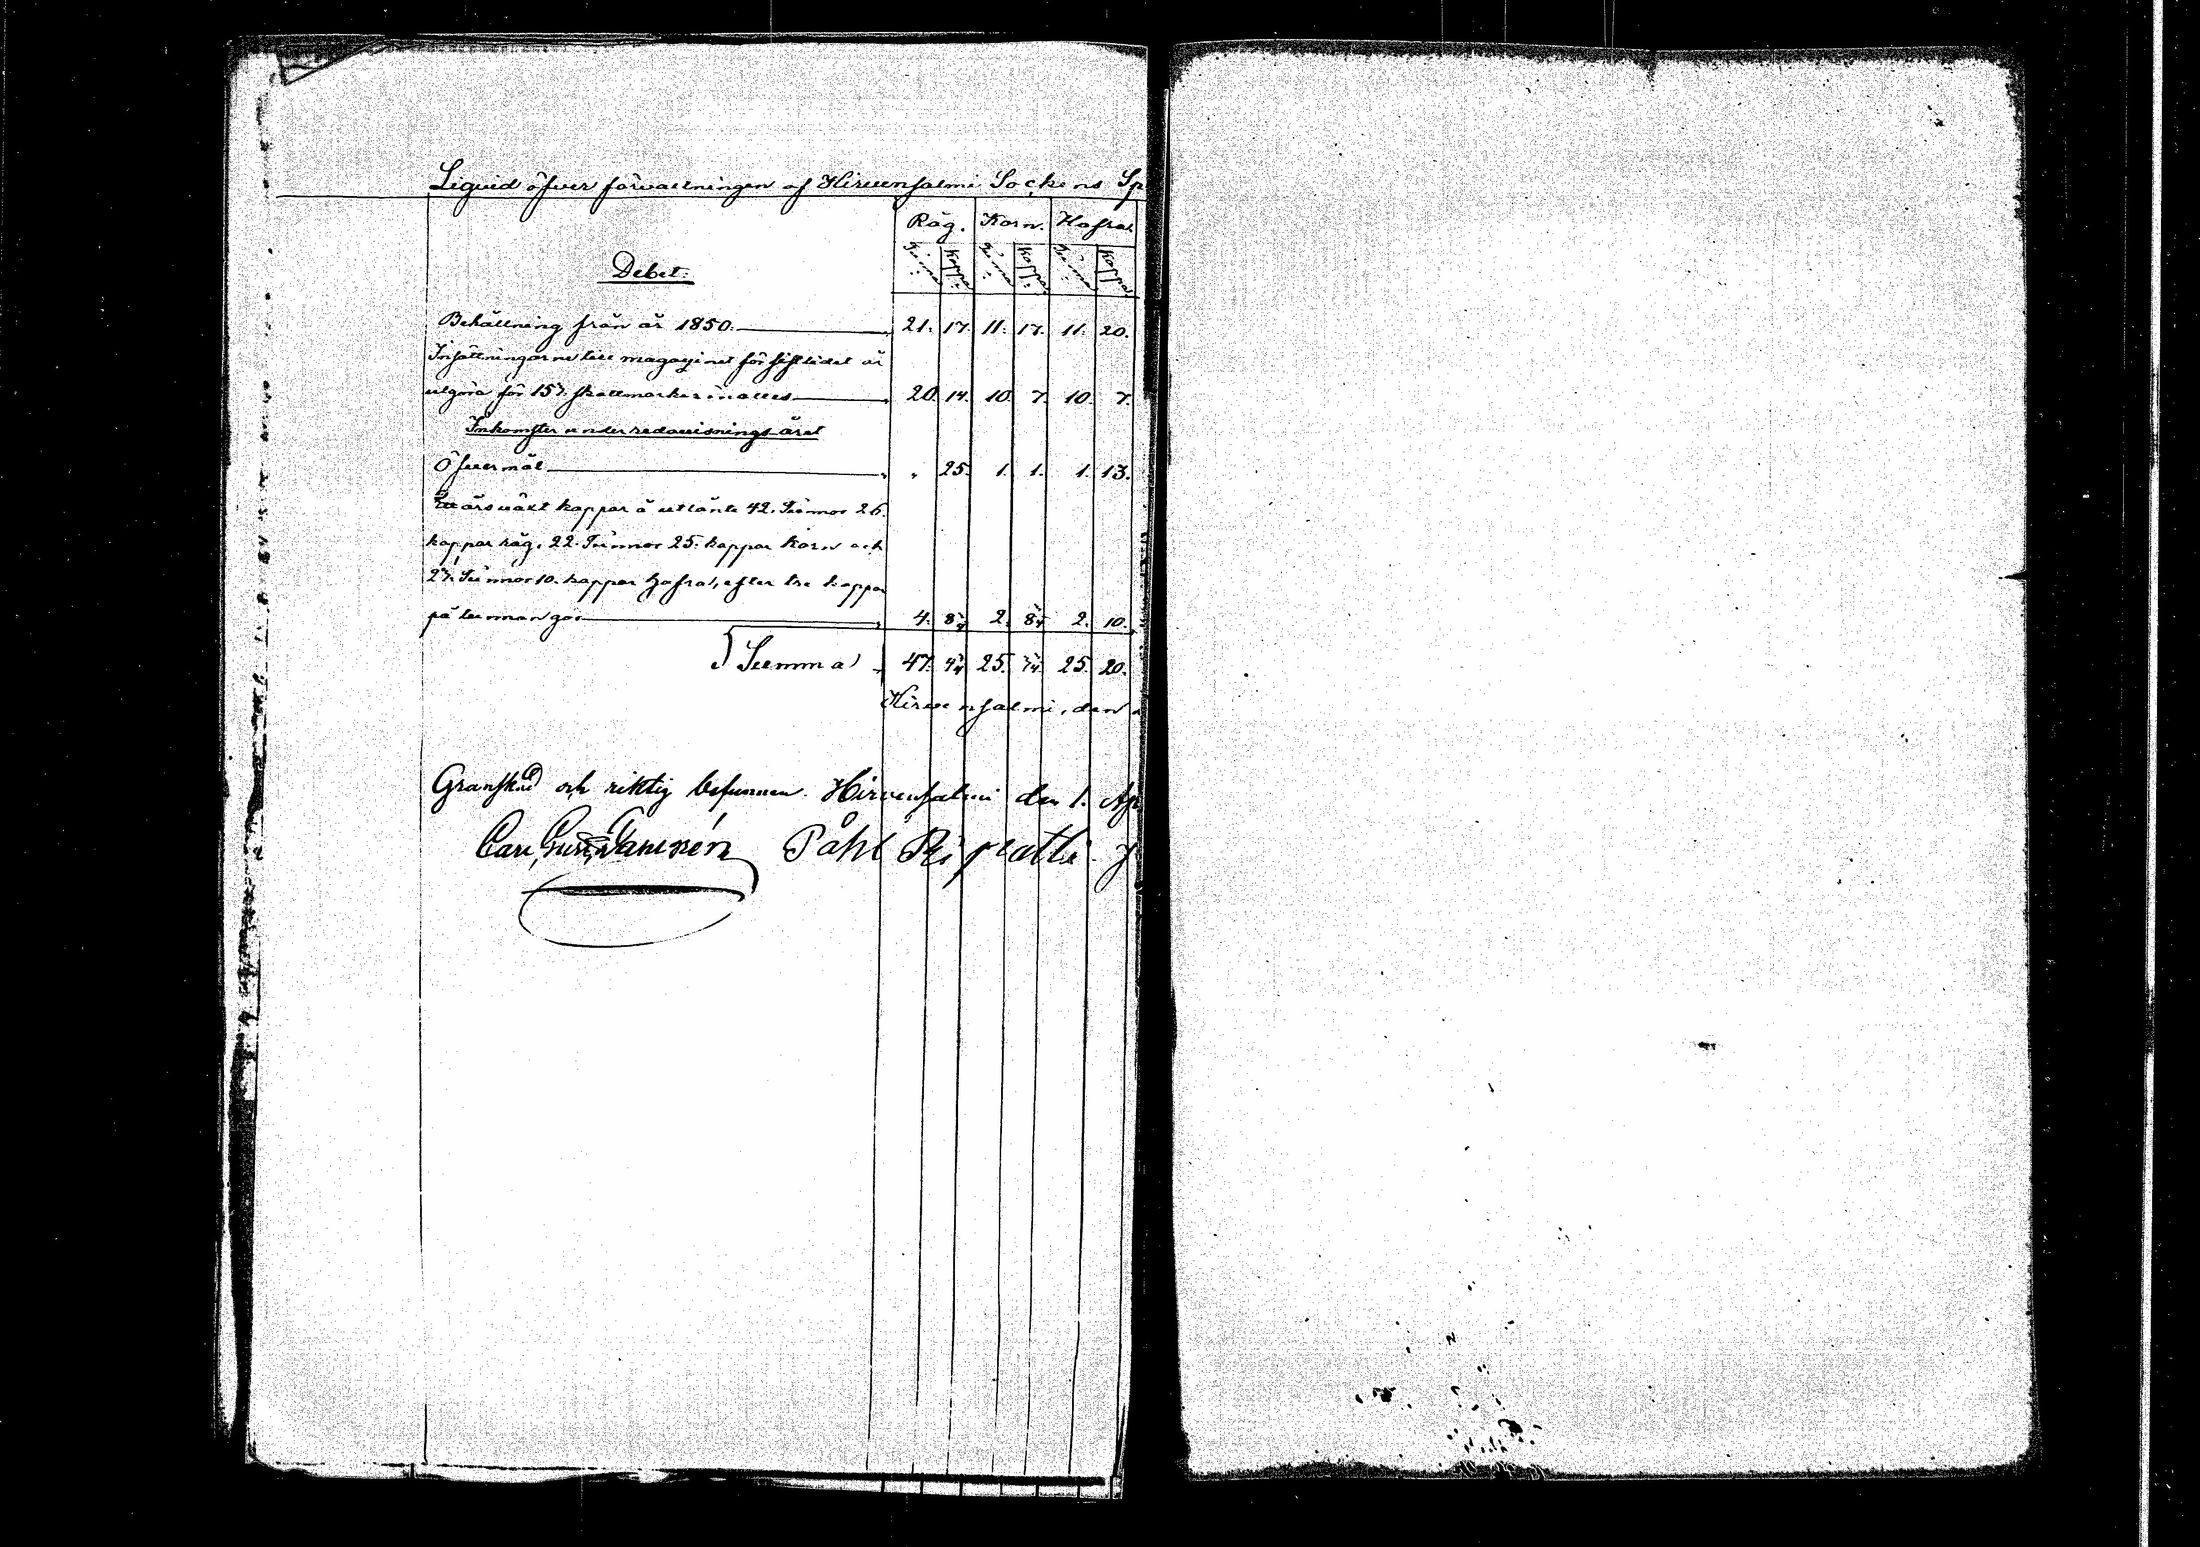 Liquid öfver förvaltningen af Hirvensalmi Sockens Sp
Råg. Korn. Hafra.
Tunna Kappa Tunna Kappa Tunna Kappa
Debet.
Behållning från år 1850. 21. 17. 11. 17. 11. 20.
Insättningarne till magazinet för sistlidet år
utgöra för 157. skattmarker inalles 20. 14. 10. 7. 10. 7.
Inkomster under redovisnings året
Öfvermål „ 25. 1. 1. 1. 13.
årsväxt kappar å utlånte 42. Tunnor 26.
kappar råg, 22. Tunnor 25. kappar korn och
27. Tunnor 10. kappar hafra, efter tre kappar
på tunnan gör 4. 2. 2. 10.
Summa 47. 25. 25. 20.
Hirvensalmi, den
Granskad och riktig befunnen. Hirvensalmi den 1. Ap
Carl Påhl Ripatti J